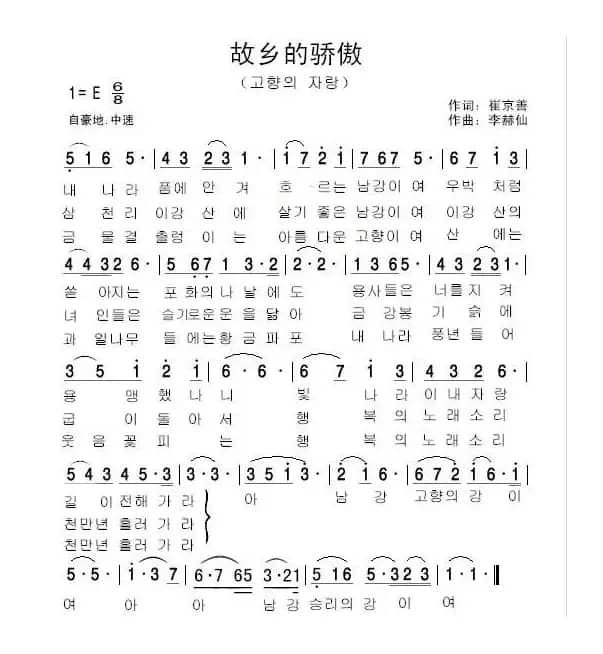 故乡的骄傲
(고향의 자랑)
1= E 6/8
自豪地.中速
作词：崔京善
作曲：李赫仙
5 1 6 5· | 4 3 2 3· | 1 7 2 1 | 7 6 7 5· | 6 7 1 3·
내 나 라 품에 안 겨 흐 르는 남강이 여 우박 처럼
삼 천리 이강 산 에 살기 좋은 남강이 여 이강 산의
금 물결 출렁 이 는 아름 다운 고향이 여 산 에는
4 4 3 2 6· | 5 6 7 1 3·2 | 2·2· | 1 3 6 5· | 4 3 2 3
쏟 아지는 포 화의 나 날 에 도 용사들은 너를 지 켜
녀 인들은 슬기로운 운 을 닮 아 금 강봉 기 슭 에
과 일나무 들 에는 황 금 파 포 내 나라 풍년 들 어
3 5 1 2 1 | 6·6· | 6 7 1 3 4 3
용 맹 했 나 니 빛 나 라 이 내 자 랑
굽 이 돌 아 서 행 복 의 노 래 소 리
웃 음 꽃 피 는 행 복 의 노 래 소 리
5 4 3 4 5·3 | 3·3· | 3 5 1 3 | 2 1 6· | 6 7 2 1 6·1
길 이 전해 가 라 아 남 강 고향의 강 이
천만년 흘러 가 라
천만년 흘러 가 라
5·5· | 1·3·7 | 6·7 6 5 | 3·2 1 | 5 1 6 5· | 5·3 2 | 1·1·
여 아 아 남 강 승리의 강 이 여